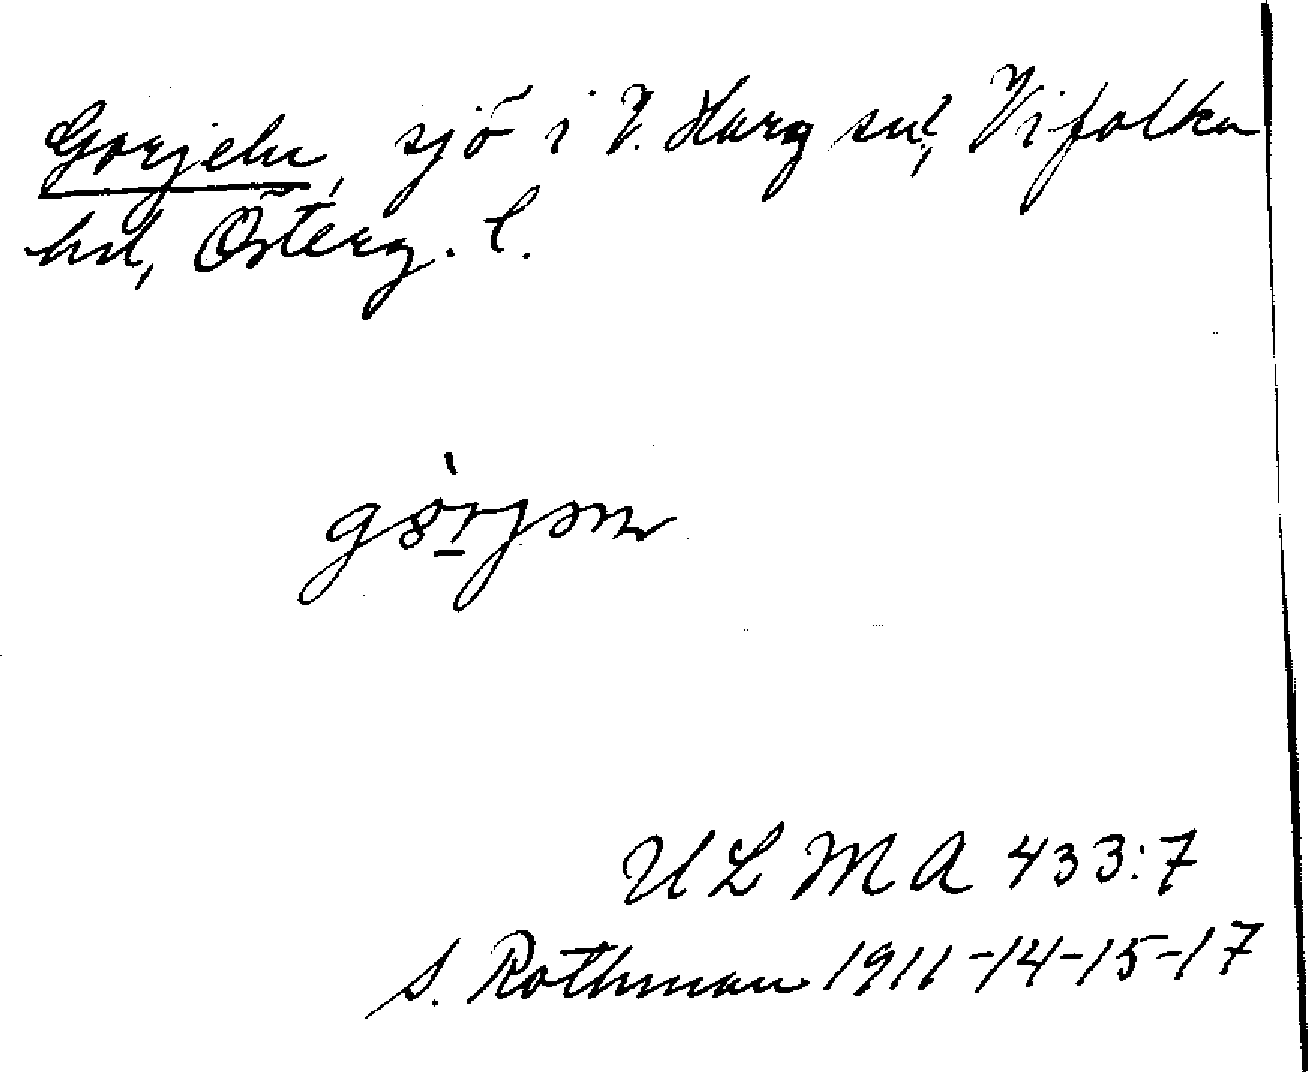 Gorjeln, sjö i V. Harg sn, Vifolka
hd, Österg. l.
ULMA 433:7
S. Rothman 1911-14-15-17